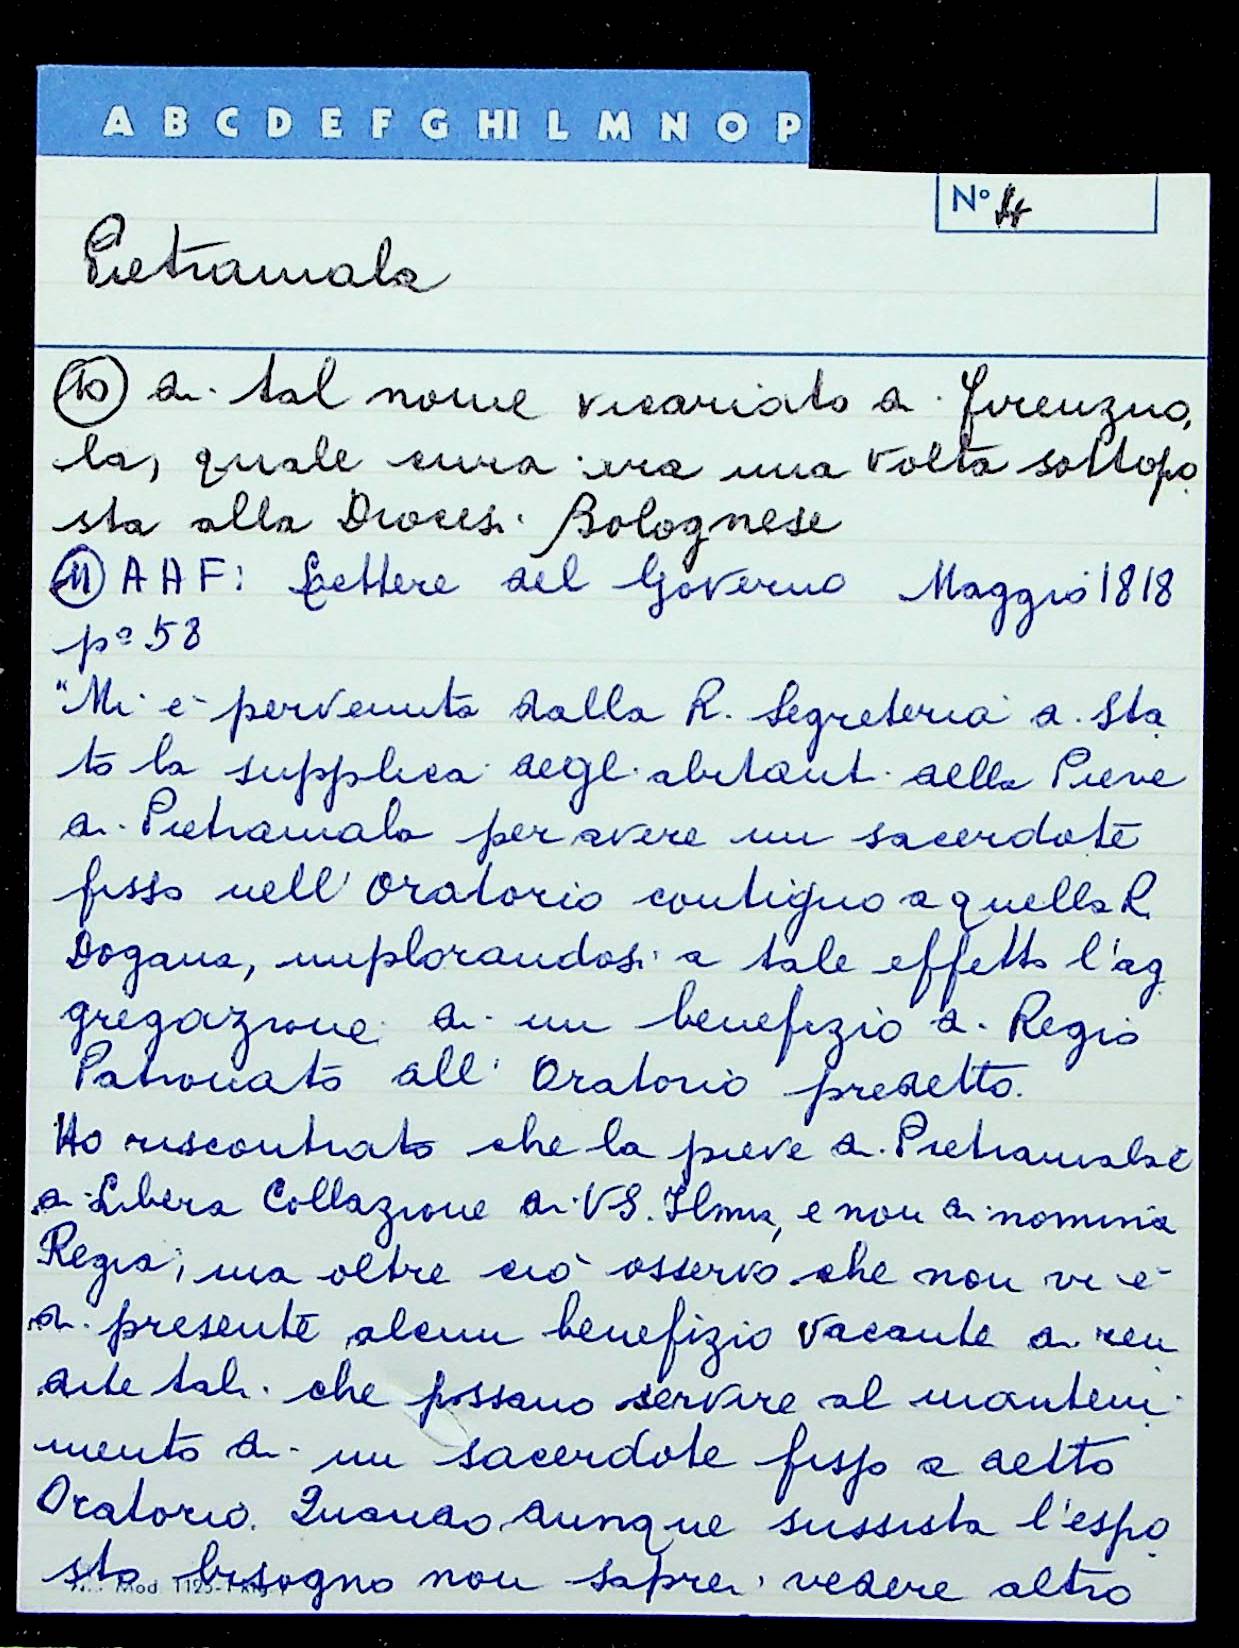 A B C D E F G HI L M N O P
N° 4
Pietramala
(10) di tal nome vicariato di Firenzuo
la, quale cura era una volta sottopo
sta alla Diocesi Bolognese
(11) A A F: Lettere del Governo Maggio 1818
p° 58
"Mi è pervenuta dalla R. Segreteria di Sta
to la supplica degli abitanti della Pieve
di Pietramala per avere un sacerdote
fisso nell' Oratorio contiguo a quella R.
Dogana, implorandosi a tale effetto l'ag
gregazione di un benefizio di Regio
Patronato all' Oratorio predetto.
Ho riscontrato che la pieve di Pietramala è
di Libera Collazione di VS. Ilma, e non di nomina
Regia; ma oltre ciò osservo che non vi è
di presente alcun benefizio vacante di ren
dite tali che possano servire al manteni
mento di un sacerdote fisso a detto
Oratorio. Quando dunque sussista l'espo
sto bisogno non saprei vedere altro
Mod